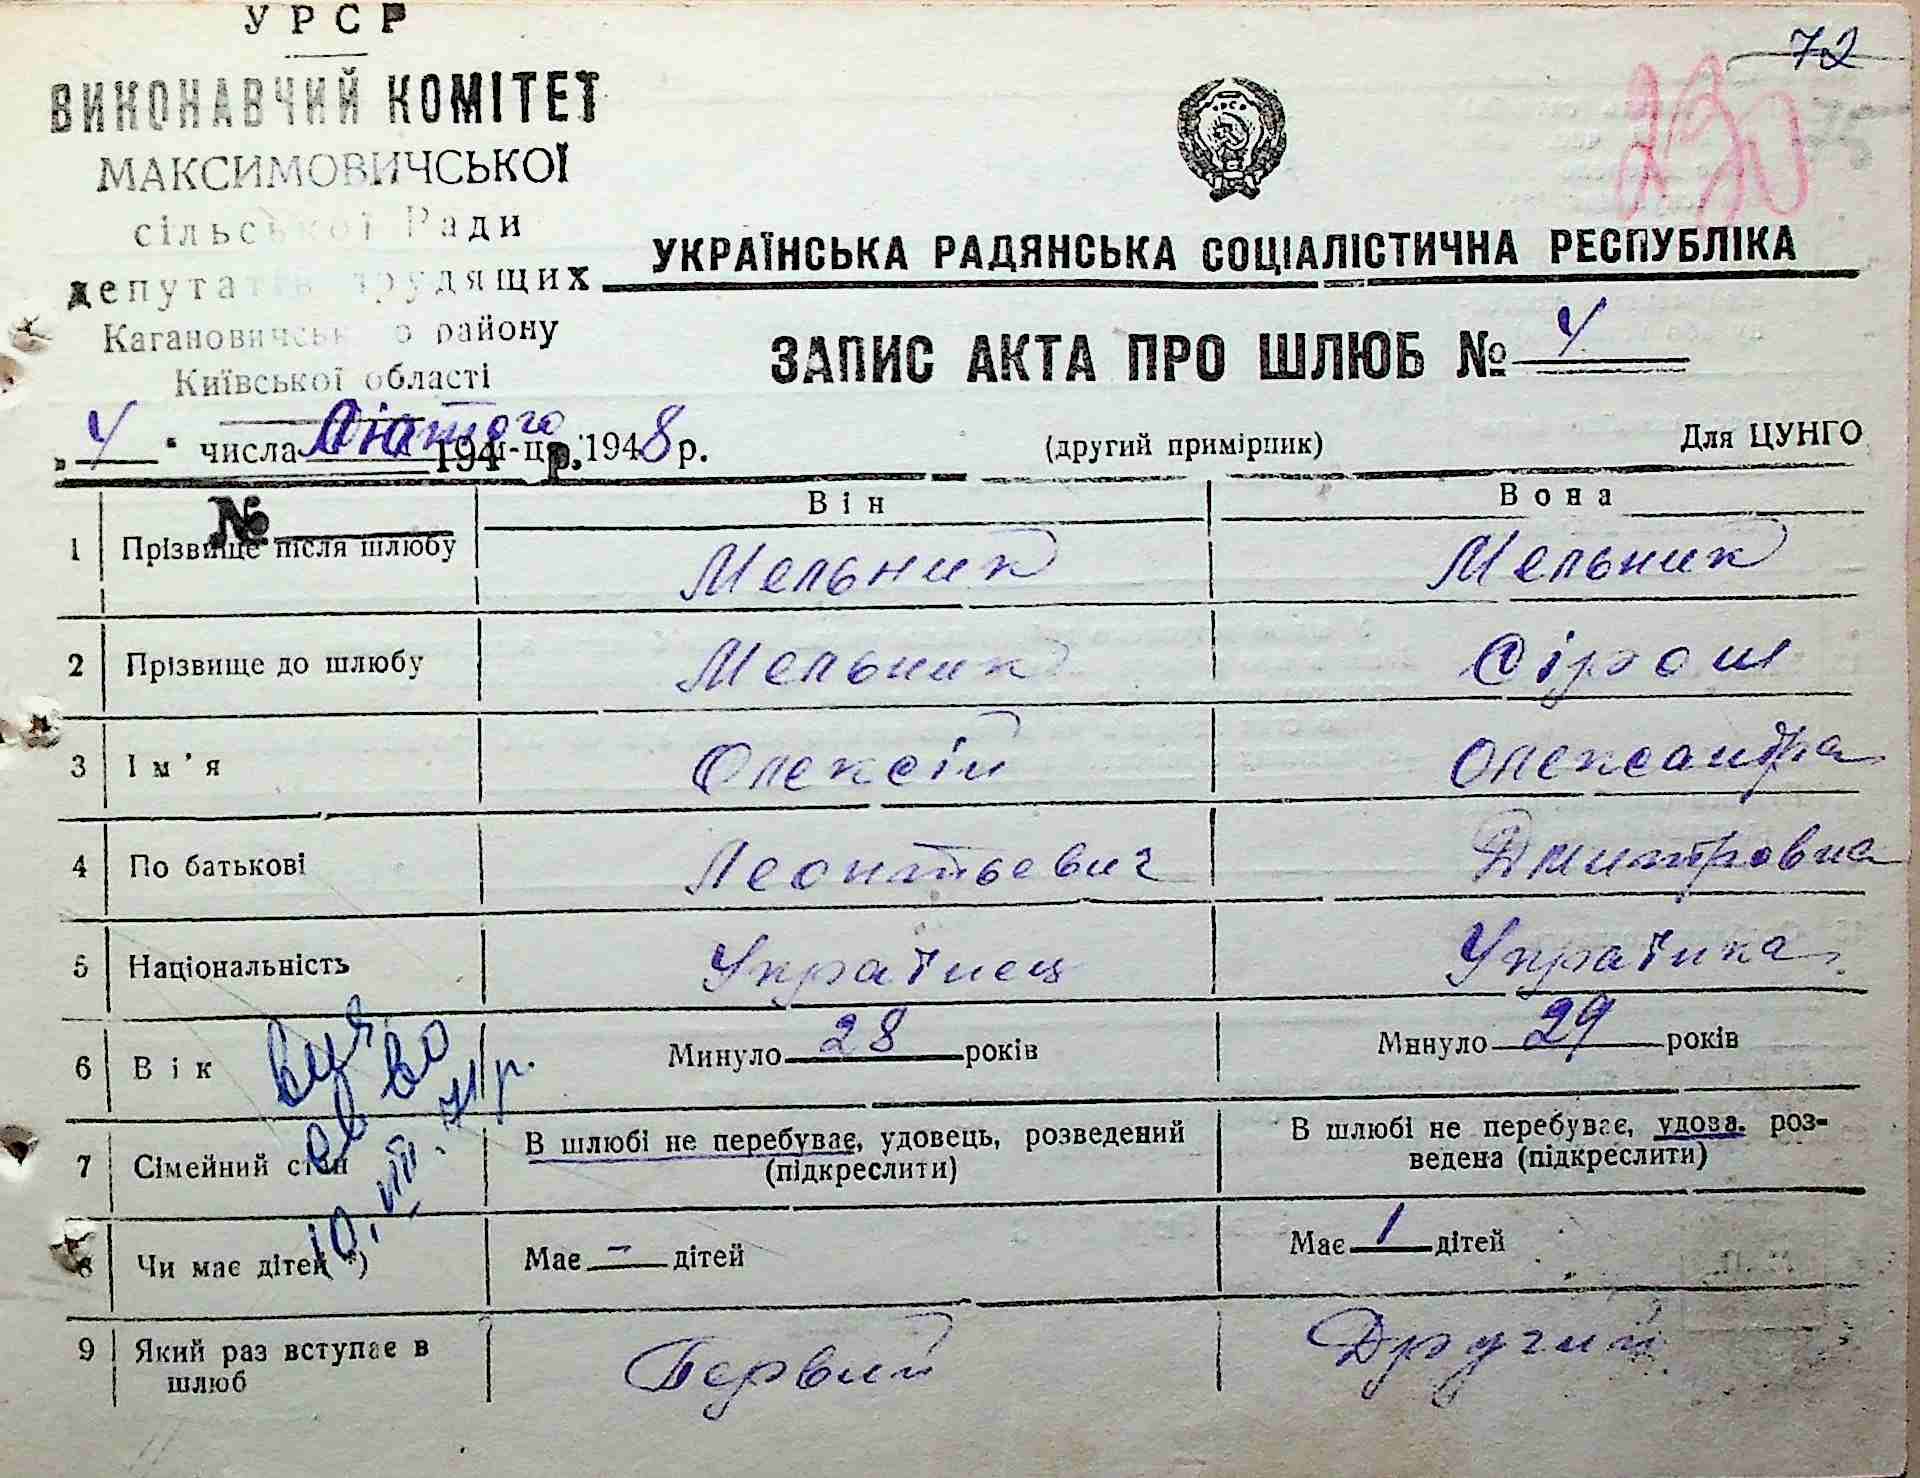 УРСР
ВИКОНАВЧИЙ КОМІТЕТ
МАКСИМОВИЧСЬКОЇ
сільської Ради
депутатів трудящих
Кагановичського району
Київської області
194 р.
№
72
230
75
УРСР
УКРАЇНСЬКА РАДЯНСЬКА СОЦІАЛІСТИЧНА РЕСПУБЛІКА
ЗАПИС АКТА ПРО ШЛЮБ № 4
„4" числа Лютого м-ця 1948 р. (другий примірник) Для ЦУНГО
Він Вона
1 Прізвище після шлюбу Мельник Мельник
2 Прізвище до шлюбу Мельник Сірош
3 Ім'я Олексій Олександра
4 По батькові Леонтьевич Дмитровна
5 Національність Украінец Украінка
6 Вік Минуло 28 років Минуло 29 років
7 Сімейний стан В шлюбі не перебуває, удовець, розведений (підкреслити) В шлюбі не перебуває, удова, роз-
ведена (підкреслити)
8 Чи має дітей *) Має – дітей Має 1 дітей
9 Який раз вступає в
шлюб Первий Другий
10.III.71 р.